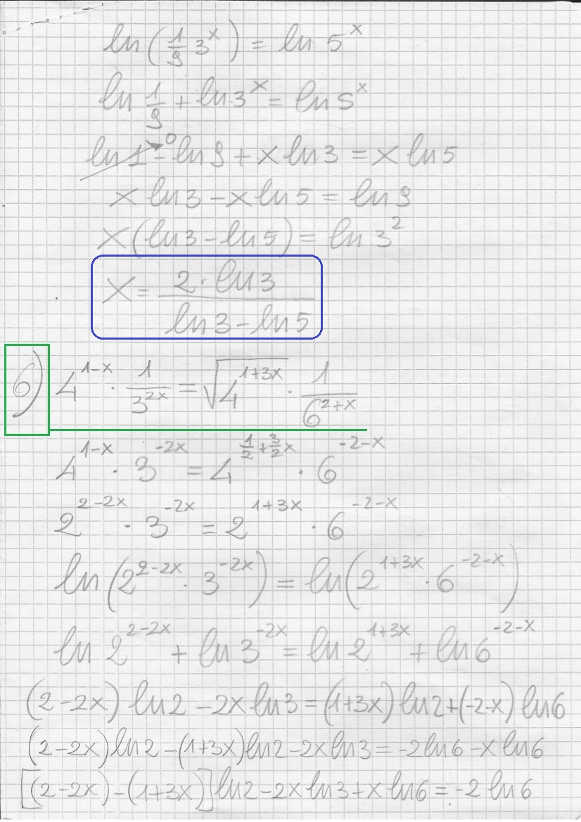 ln(1/9 3^x) = ln 5^x
ln 1/9 + ln3^x = ln5^x
ln1 - ln9 + x ln3 = x ln5 0
x ln3 - x ln5 = ln9
x(ln3 - ln5) = ln 3^2
x = 2·ln3 / ln3 - ln5
6) 4^(1-x) · 1/3^(2x) = √4^(1+3x) · 1/6^(2+x)
4^(1-x) · 3^(-2x) = 4^(1/2+3/2x) · 6^(-2-x)
2^(2-2x) · 3^(-2x) = 2^(1+3x) · 6^(-2-x)
ln(2^(2-2x) · 3^(-2x)) = ln(2^(1+3x) · 6^(-2-x))
ln 2^(2-2x) + ln 3^(-2x) = ln 2^(1+3x) + ln 6^(-2-x)
(2-2x) ln2 - 2x ln3 = (1+3x) ln2 + (-2-x) ln6
(2-2x) ln2 - (1+3x) ln2 - 2x ln3 = -2 ln6 - x ln6
[(2-2x) - (1+3x)] ln2 - 2x ln3 + x ln6 = -2 ln6